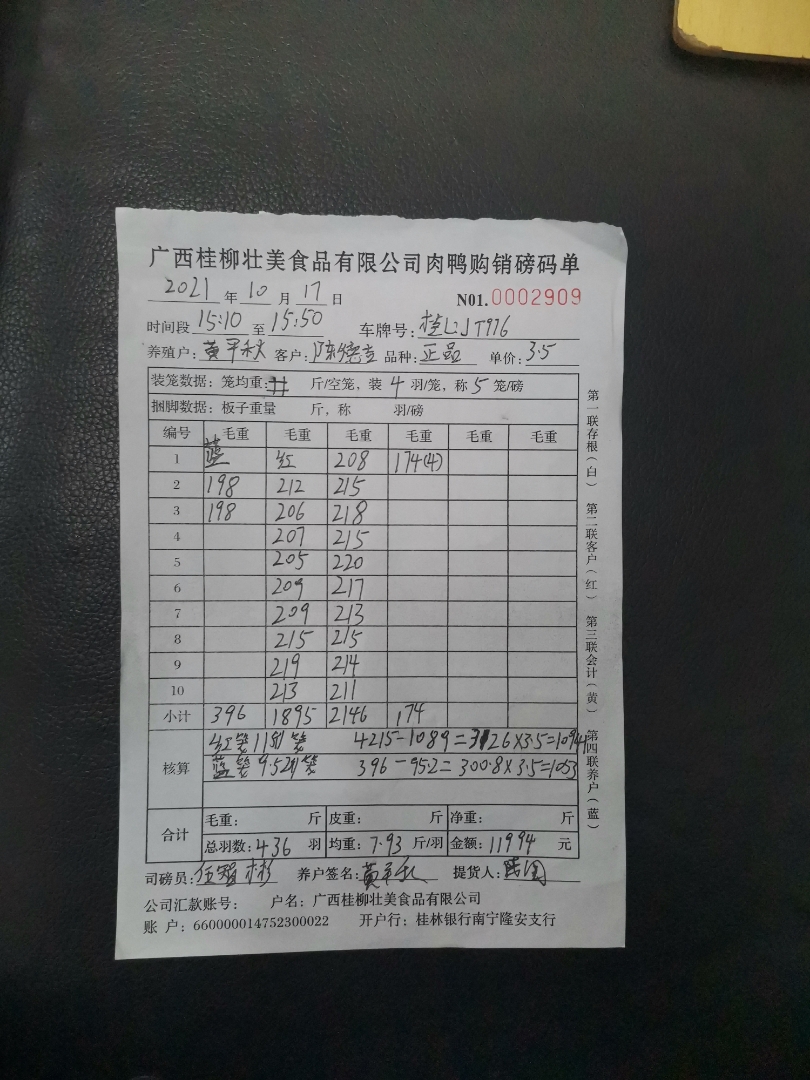 广西桂柳壮美食品有限公司肉鸭购销磅码单
2021 年 10 月 17 日 N01.0002909
时间段 15:10 至 15:50 车牌号: 桂L JT976
养殖户: 黄平秋 客户: 陈德立 品种: 正品 单价: 3.5
装笼数据: 笼均重: 斤/空笼, 装 4 羽/笼, 称 5 笼/磅
捆脚数据: 板子重量 斤, 称 羽/磅
编号 毛重 毛重 毛重 毛重 毛重 毛重
1 蓝 红 208 174(4)
2 198 212 215
3 198 206 218
4 207 215
5 205 220
6 209 217
7 209 213
8 215 215
9 219 214
10 213 211
小计 396 1895 2146 174
核算
红笼 11斤/笼 4215-1089=3126×3.5=10941
蓝笼 9.52斤/笼 396-95.2=300.8×3.5=1053
合计
毛重: 斤 皮重: 斤 净重: 斤
总羽数: 436 羽 均重: 7.93 斤/羽 金额: 11994 元
司磅员: 养户签名: 黄平秋 提货人:
公司汇款账号: 户名: 广西桂柳壮美食品有限公司
账 户: 660000014752300022 开户行: 桂林银行南宁隆安支行
第一联存根(白) 第二联客户(红) 第三联会计(黄) 第四联养户(蓝)